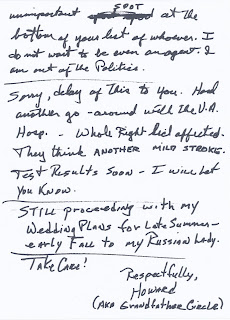 SPOT
unimportant at the
bottom of your list of whoever. I
do not want to be even an agent. I
am out of the Politics.
Sorry, delay of This to you. Had
another go-around with the V.A.
Hosp. - Whole Right side affected.
They think ANOTHER MILD STROKE.
Test Results Soon - I will let
you Know.
STILL proceeding with my
Wedding Plans for Late Summer-
early Fall to my Russian Lady.
TAKE CARE!
Respectfully,
HOWARD
(AKA Grandfather Circle)